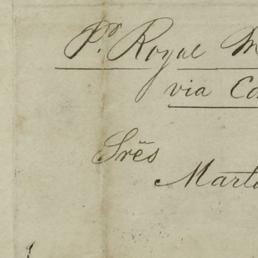 Pr Royal M
via Co
Srẽs
Mart